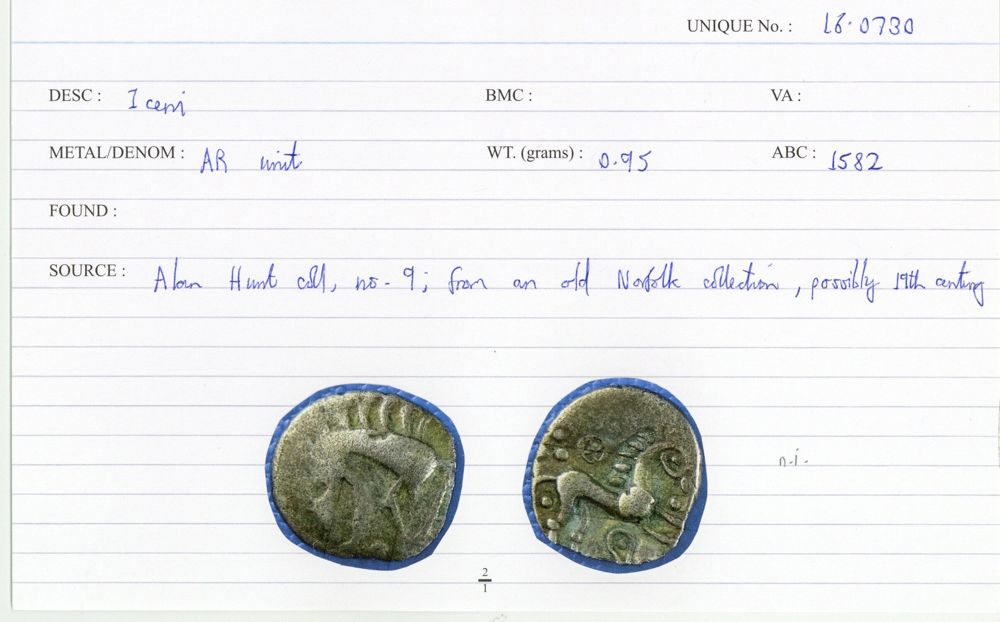 UNIQUE No. : 18.0730
DESC : Iceni BMC : VA :
METAL/DENOM : AR unit WT. (grams) : 0.95 ABC : 1582
FOUND :
SOURCE : Alan Hunt coll, no. 9; from an old Norfolk collection, possibly 19th century
n.i.
2
1